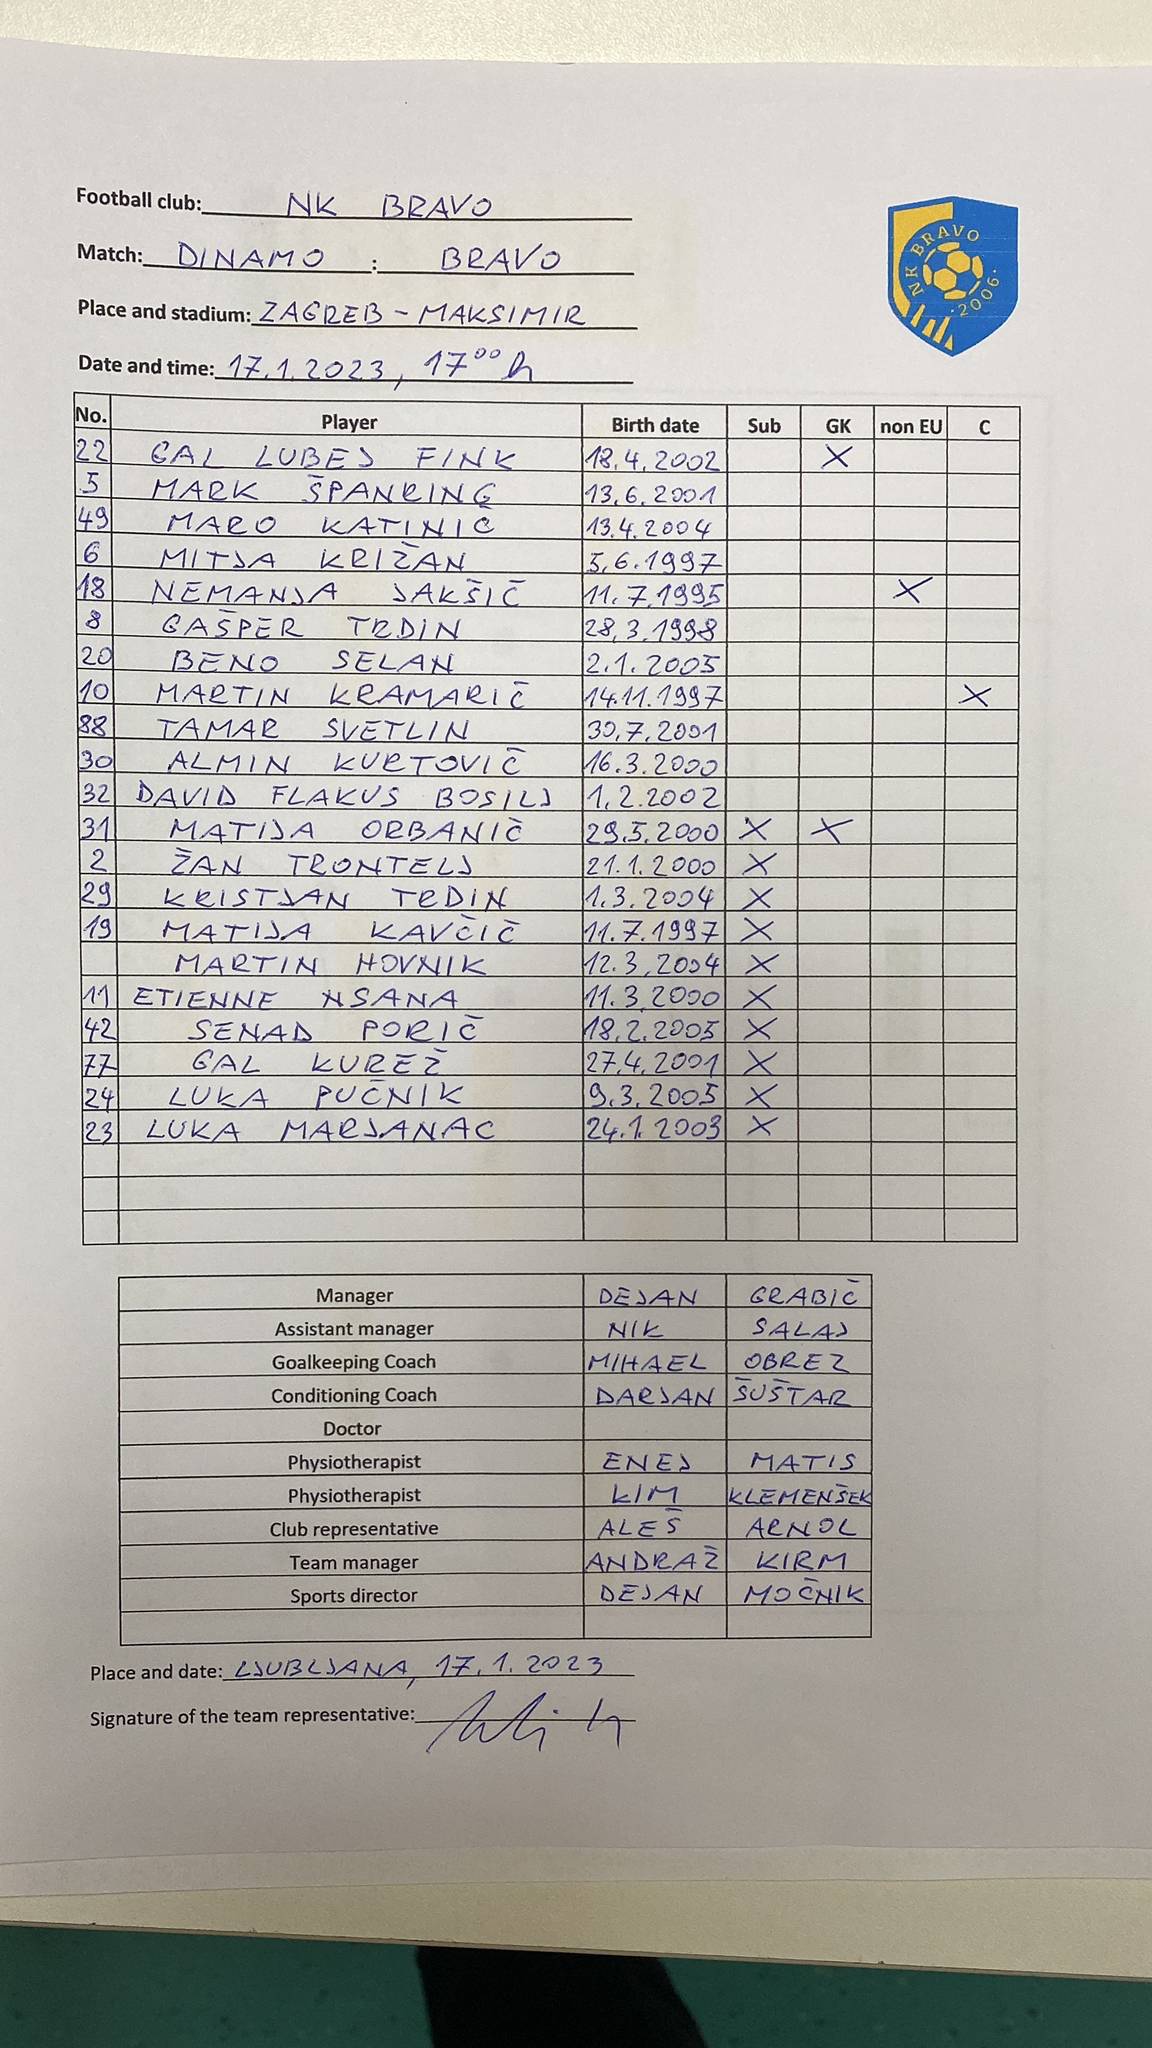 Football club: NK BRAVO
Match: DINAMO : BRAVO
Place and stadium: ZAGREB - MAKSIMIR
Date and time: 17.1.2023, 17⁰⁰ h
NK BRAVO
·2006·
No. Player Birth date Sub GK non EU C
22 GAL LUBEJ FINK 18.4.2002 X
5 MARK ŠPANRING 13.6.2001
49 MARO KATINIĆ 13.4.2004
6 MITJA KRIŽAN 5.6.1997
18 NEMANJA JAKŠIČ 11.7.1995 X
8 GAŠPER TRDIN 28.3.1998
20 BENO SELAN 2.1.2005
10 MARTIN KRAMARIČ 14.11.1997 X
88 TAMAR SVETLIN 30.7.2001
30 ALMIN KURTOVIČ 16.3.2000
32 DAVID FLAKUS BOSILJ 1.2.2002
31 MATIJA ORBANIČ 29.5.2000 X X
2 ŽAN TRONTELJ 21.1.2000 X
29 KRISTJAN TRDIN 1.3.2004 X
19 MATIJA KAVČIČ 11.7.1997 X
MARTIN HOVNIK 12.3.2004 X
11 ETIENNE NSANA 11.3.2000 X
42 SENAD PORIČ 18.2.2005 X
77 GAL KUREŽ 27.4.2001 X
24 LUKA PUČNIK 9.3.2005 X
23 LUKA MARJANAC 24.1.2003 X
Manager DEJAN GRABIČ
Assistant manager NIK SALAJ
Goalkeeping Coach MIHAEL OBREZ
Conditioning Coach DARJAN ŠUŠTAR
Doctor
Physiotherapist ENEJ MATIS
Physiotherapist KIM KLEMENŠEK
Club representative ALEŠ ARNOL
Team manager ANDRAŽ KIRM
Sports director DEJAN MOČNIK
Place and date: LJUBLJANA, 17.1.2023
Signature of the team representative: